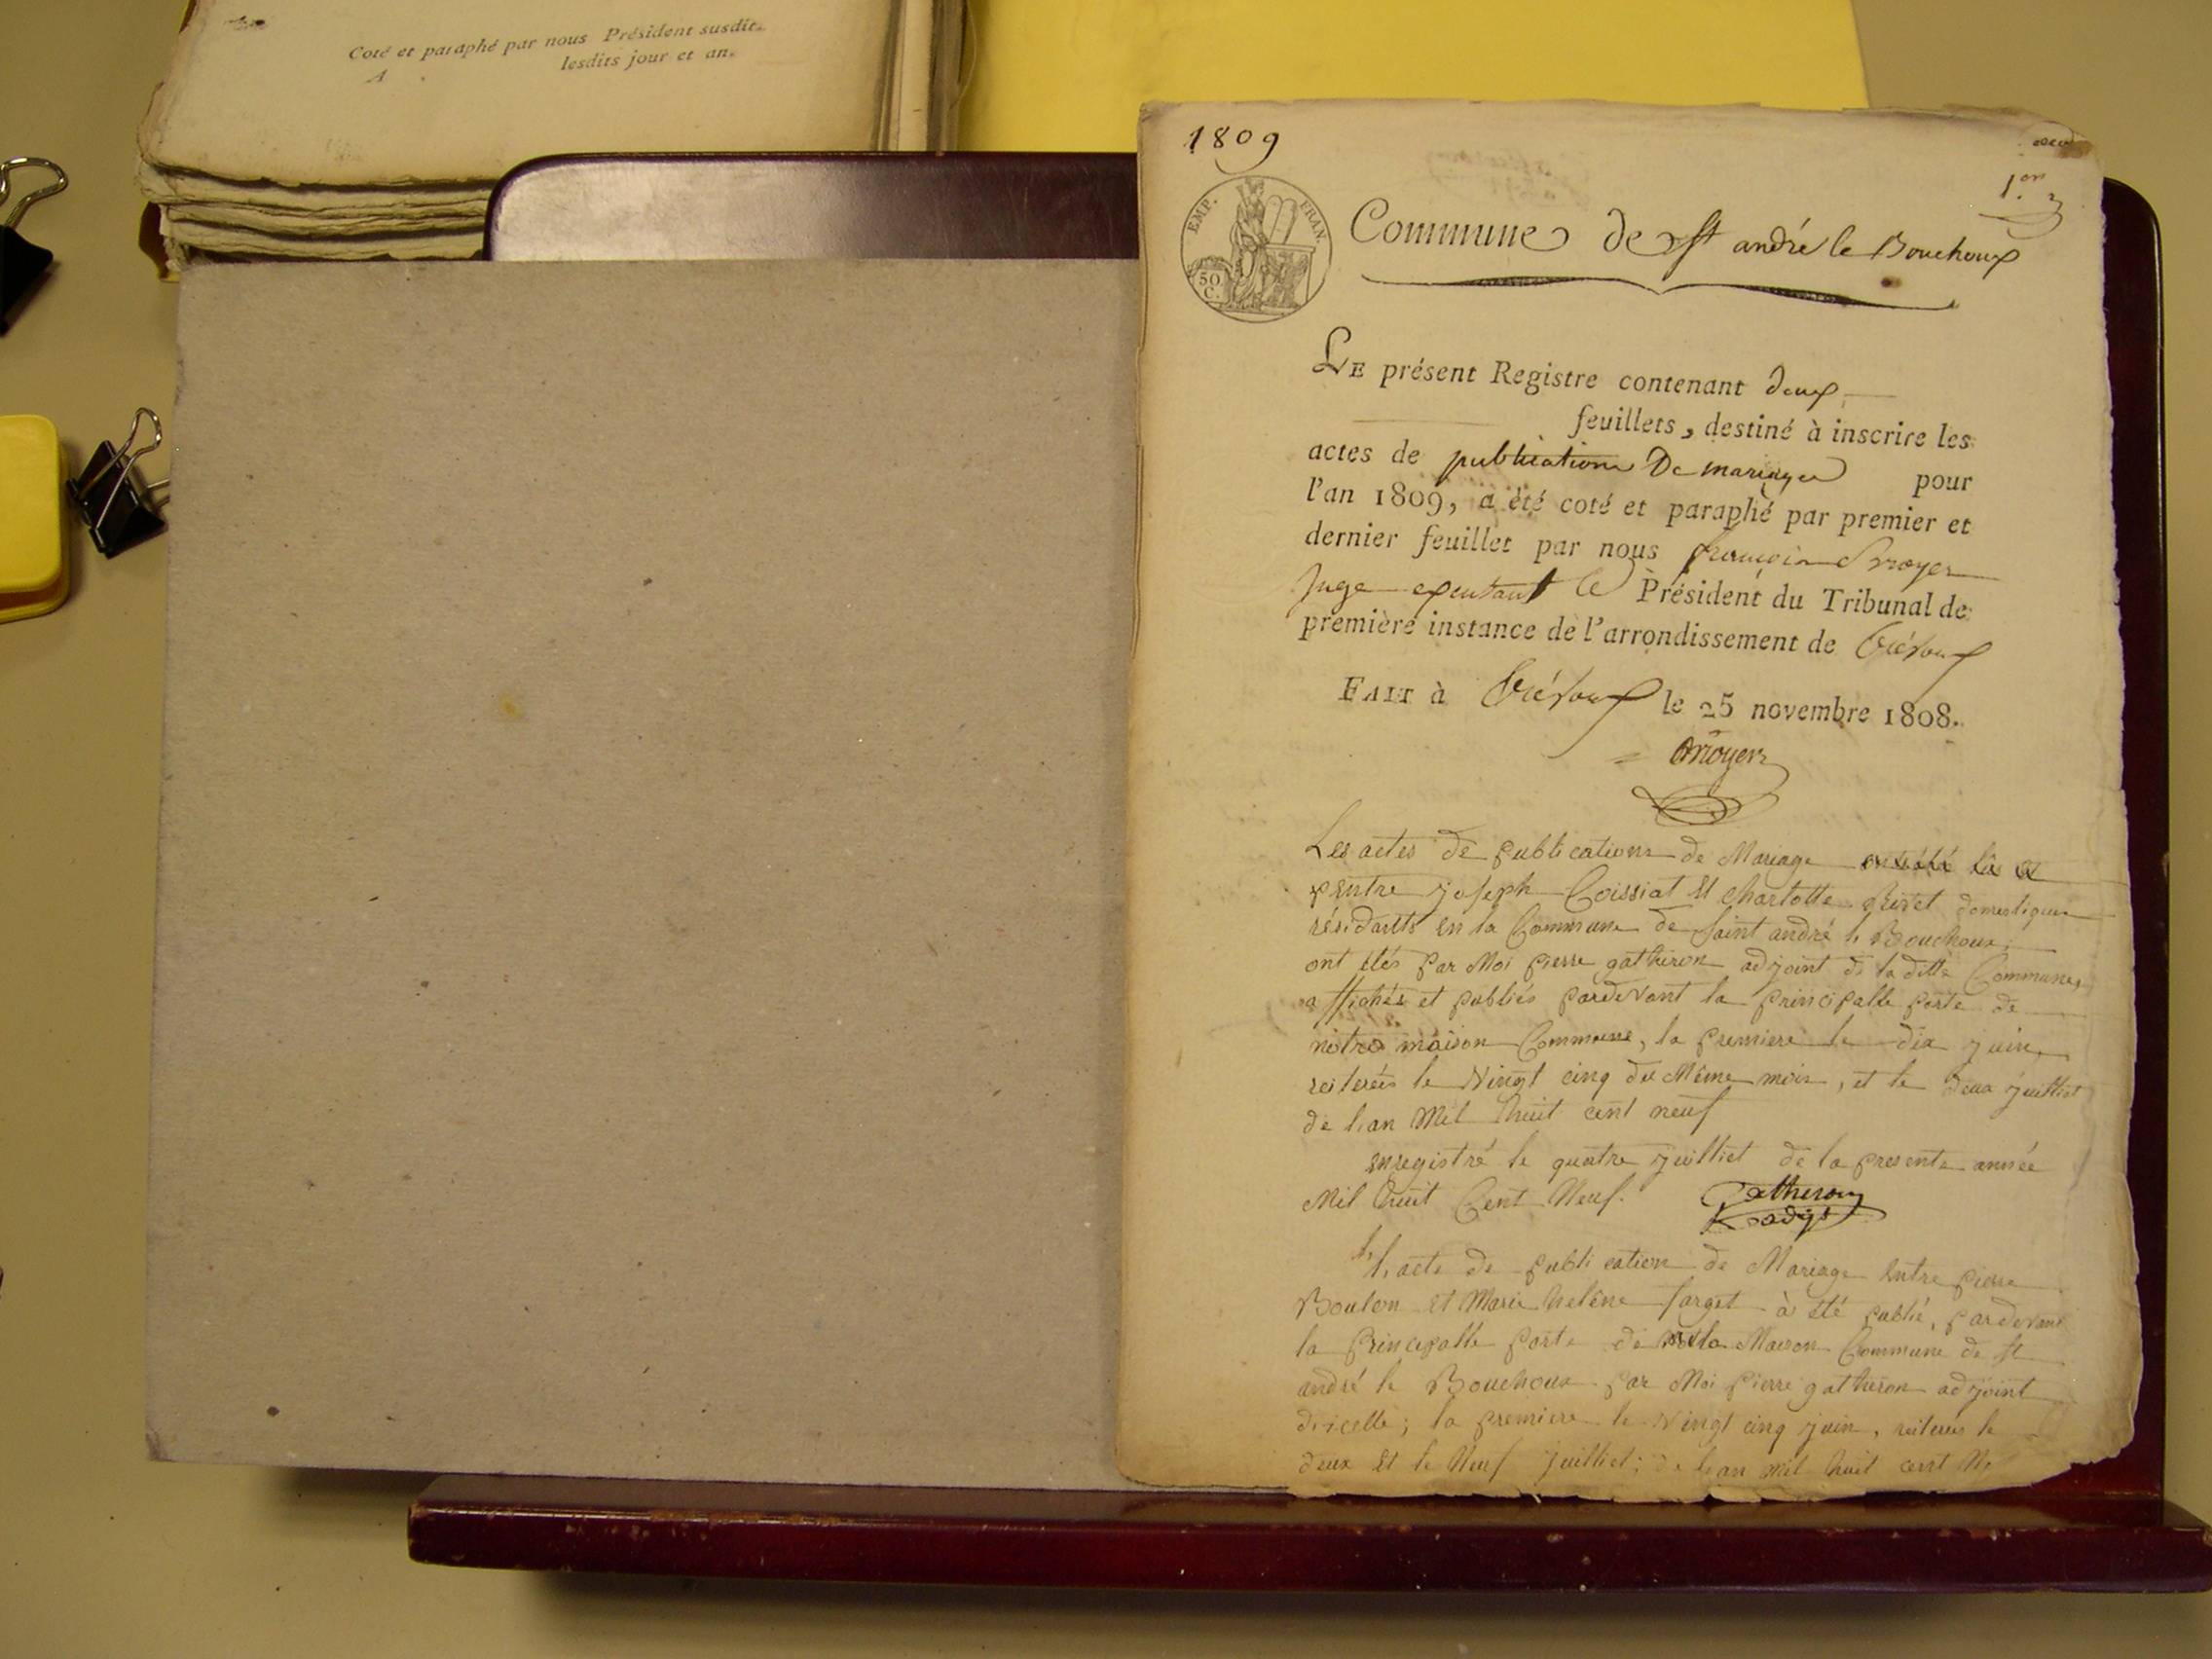 Coté et paraphé par nous Président susdit.
lesdits jour et an.
A
1809
1.er
EMP. FRAN.
50
C.
Commune de st andré le Bouchoux
LE présent Registre contenant deux
feuillets, destiné à inscrire les
actes de publications De mariages pour
l'an 1809, a été coté et paraphé par premier et
dernier feuillet par nous françois Brroyer
Juge exputant le Président du Tribunal de
première instance de l'arrondissement de Trévoux
FAIT à Trévoux le 25 novembre 1808.
Les actes de publications de Mariage
entre joseph Coissiat Et Charlotte domestiques
résidants en la Commune de saint andré le Bouchoux,
ont étés par Moi pierre gatheron adjoint de la ditte Commune,
affichés et publiés pardevant la principalle porte de
nôtre maison Commune, la premiere le dix juin,
reiterées le Vingt cinq du Même mois, et le deux juilliet
de l'an Mil huit cent neuf
enregistré le quatre juilliet de la presente année
Mil huit Cent Neuf. Gatheron
adjt
L'acte de publication de Mariage Entre pierre
Boulon Et Marie helêne farget à été publié, pardevant
la Principalle porte de la Maison Commune de st
andré le Bouchoux par Moi pierre gatheron adjoint
d'icelle; la premiere le Vingt cinq juin, reiterées le
deux Et le Neuf juilliet; de l'an mil huit cent